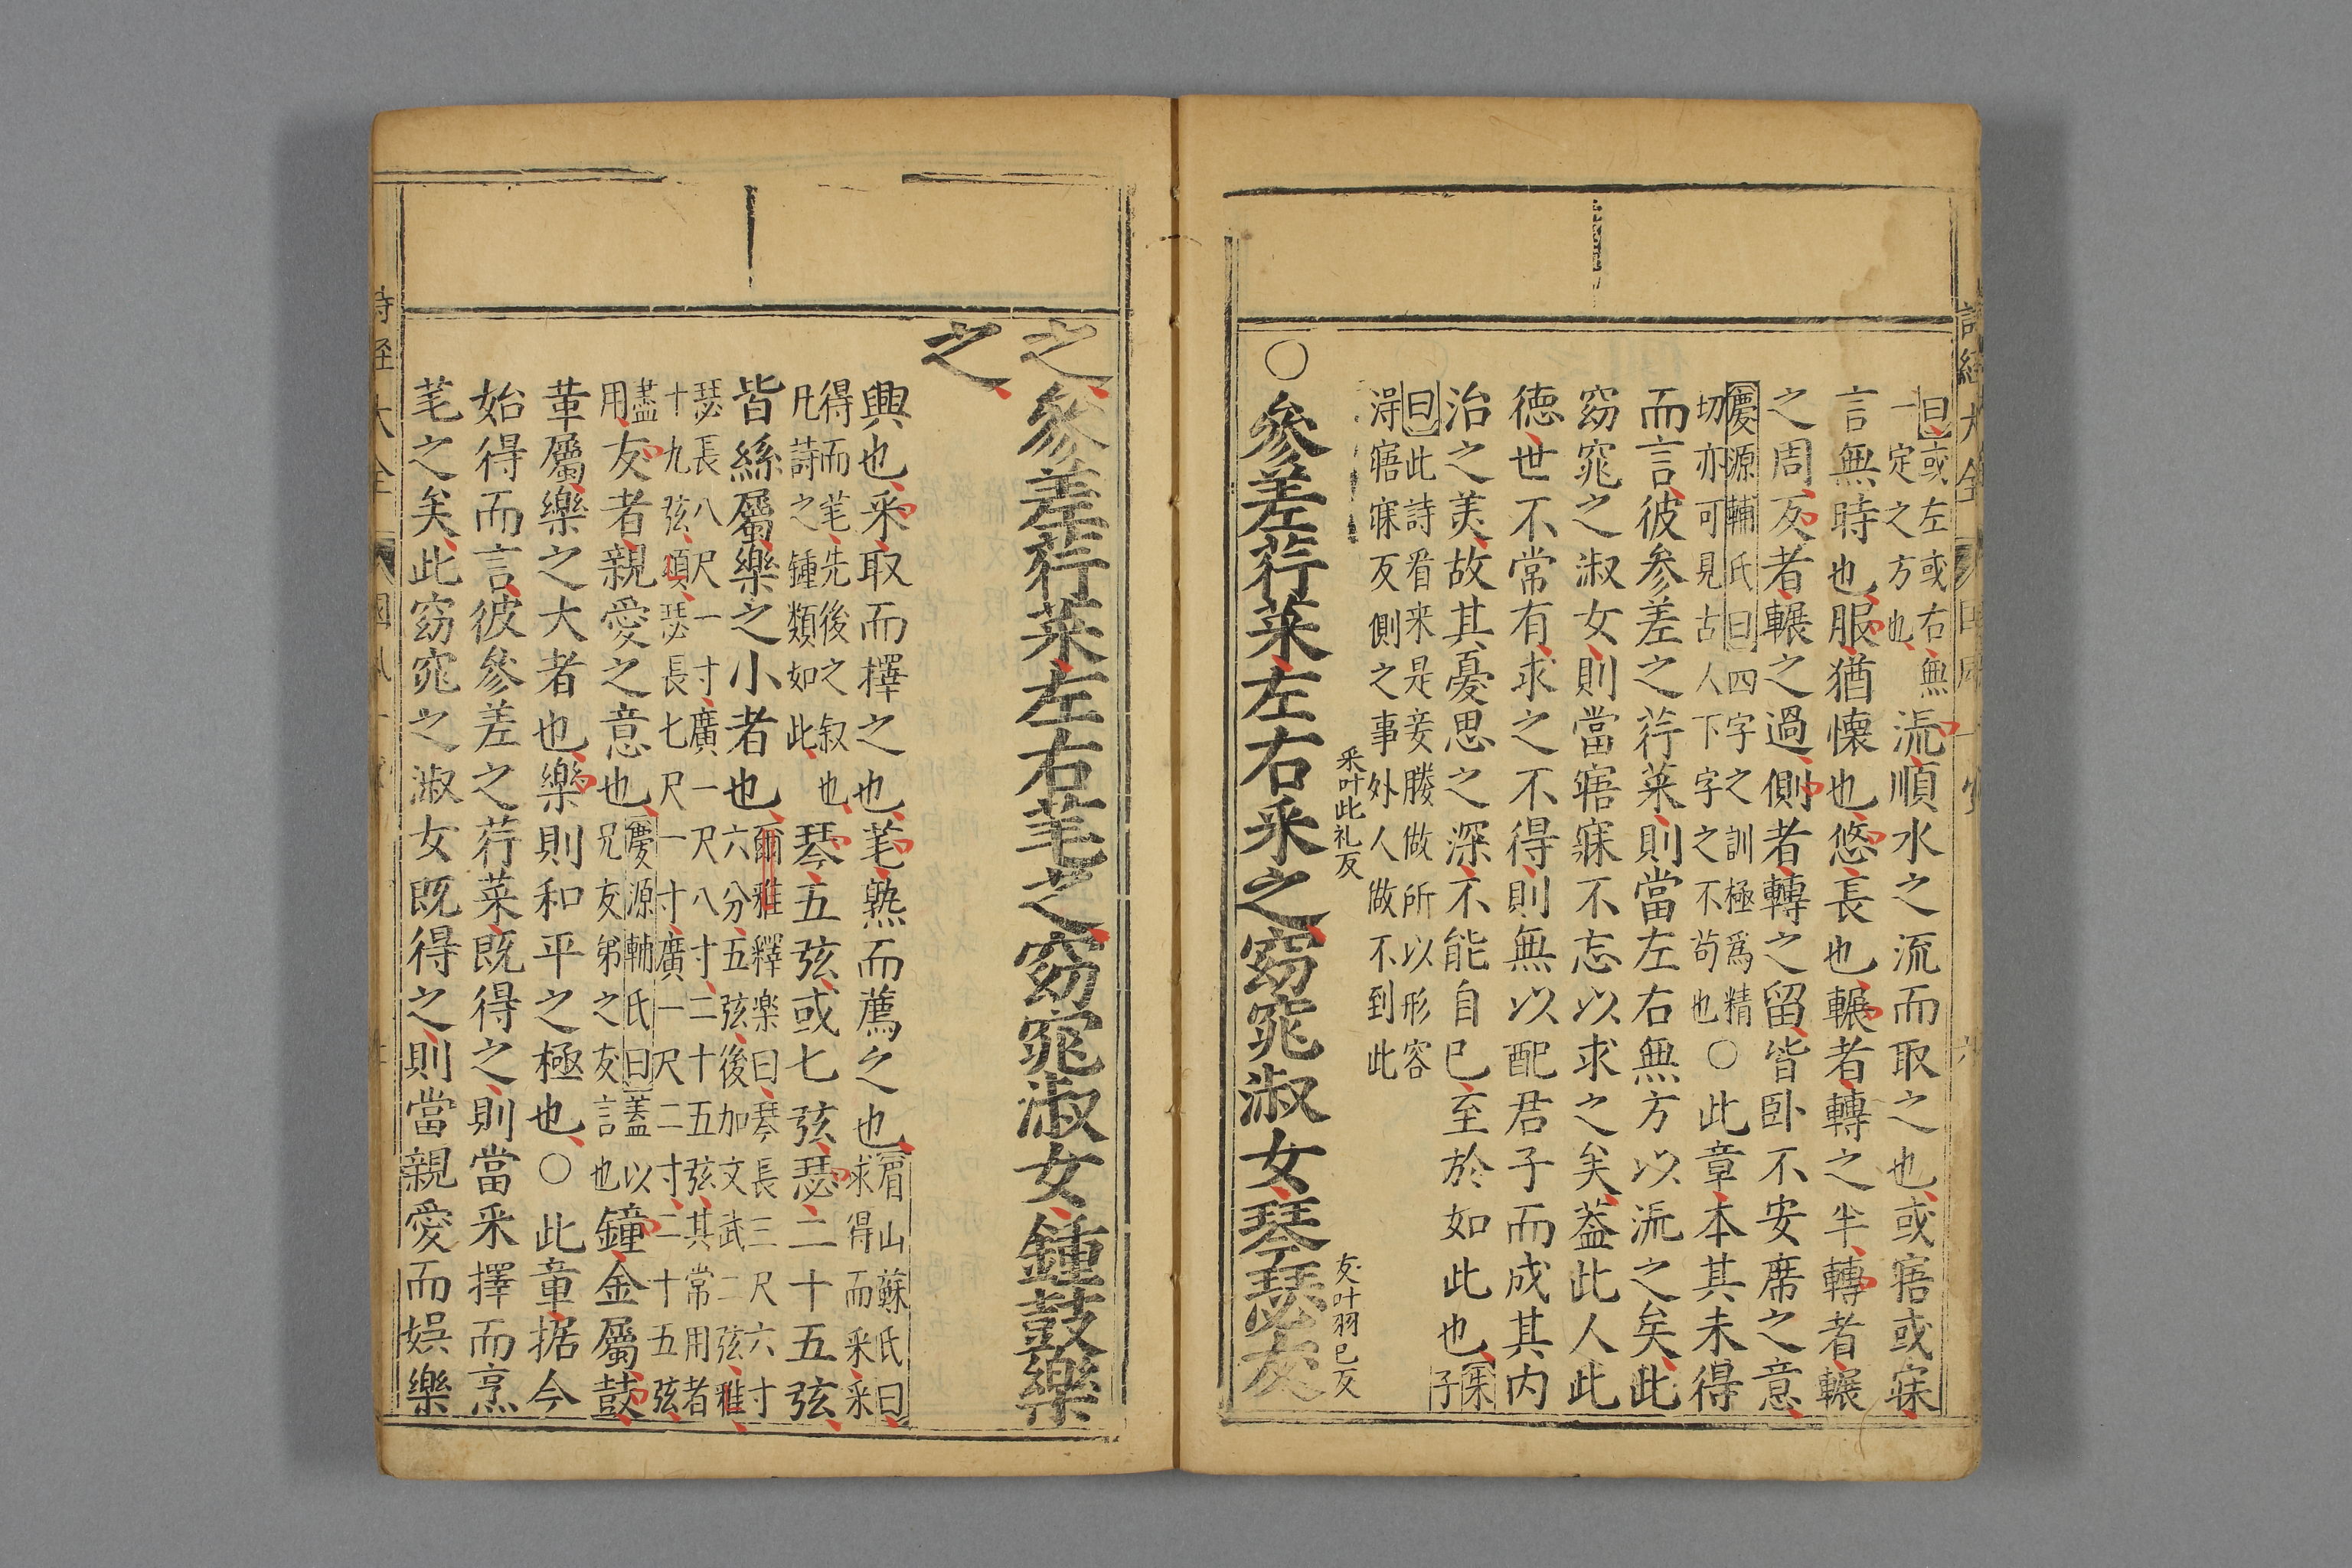 曰或左或右無
一定之方也
流順水之流而取之也或寤或寐
言無時也服猶懷也悠長也輾者轉之半轉者輾
之周反者輾之過側者轉之留皆卧不安席之意
慶源輔氏曰四字之訓極爲精
切亦可見古人下字之不苟也
○此章本其未得
而言彼参差之荇菜則當左右無方以流之矣此
窈窕之淑女則當寤寐不忘以求之矣蓋此人此
德世不常有求之不得則無以配君子而成其内
治之美故其憂思之深不能自已至於如此也
朱子
曰此詩看来是妾媵做所以形容
淂寤寐反側之事外人做不到此
○參差荇菜左右采之窈窕淑女琴瑟友
采叶此礼反
友叶羽已反
之參差荇菜左右芼之窈窕淑女鍾鼓樂
之
興也采取而擇之也芼熟而薦之也
眉山蘇氏曰求得而采采
得而芼先後之叙也
凡詩之鍾類如此
琴五弦或七弦瑟二十五弦
皆絲屬樂之小者也
爾雅釋楽曰琴長三尺六寸
六分五弦後加文武二弦雅
瑟長八尺一寸廣一尺八寸二十五弦其常用者
十九弦頌瑟長七尺一寸廣一尺二寸二十五弦
蓋
用
友者親愛之意也
慶源輔氏曰蓋以
兄友弟之友言也
鐘金屬鼓
革屬樂之大者也樂則和平之極也○此章据今
始得而言彼參差之荇菜既得之則當采擇而烹
芼之矣此窈窕之淑女既得之則當親愛而娯樂